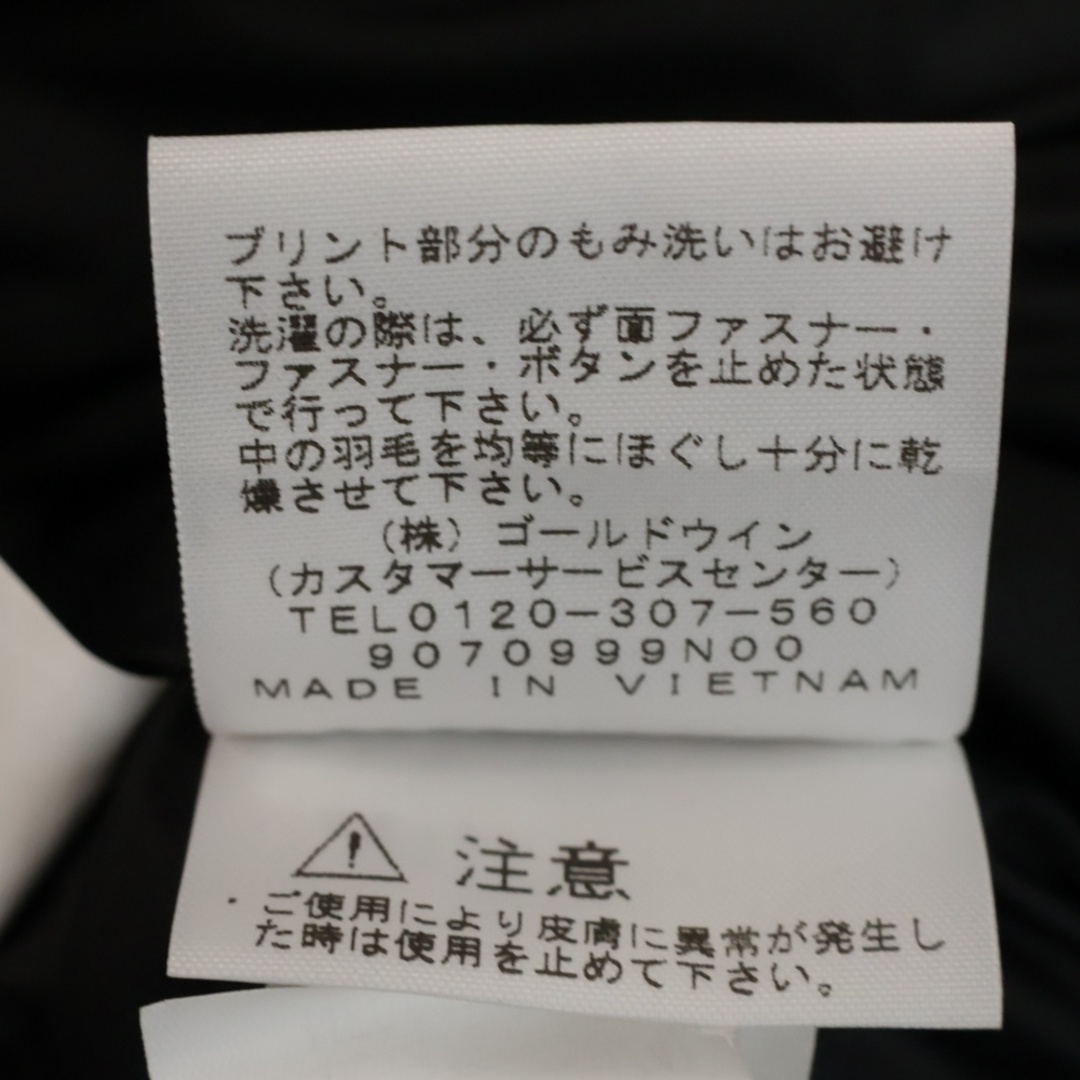 プリント部分のもみ洗いはお避け
下さい。
洗濯の際は、必ず面ファスナー・
ファスナー・ボタンを止めた状態
で行って下さい。
中の羽毛を均等にほぐし十分に乾
燥させて下さい。
(株)ゴールドウイン
(カスタマーサービスセンター)
TEL0120-307-560
9070999N00
MADE IN VIETNAM
注意
・ご使用により皮膚に異常が発生し
た時は使用を止めて下さい。